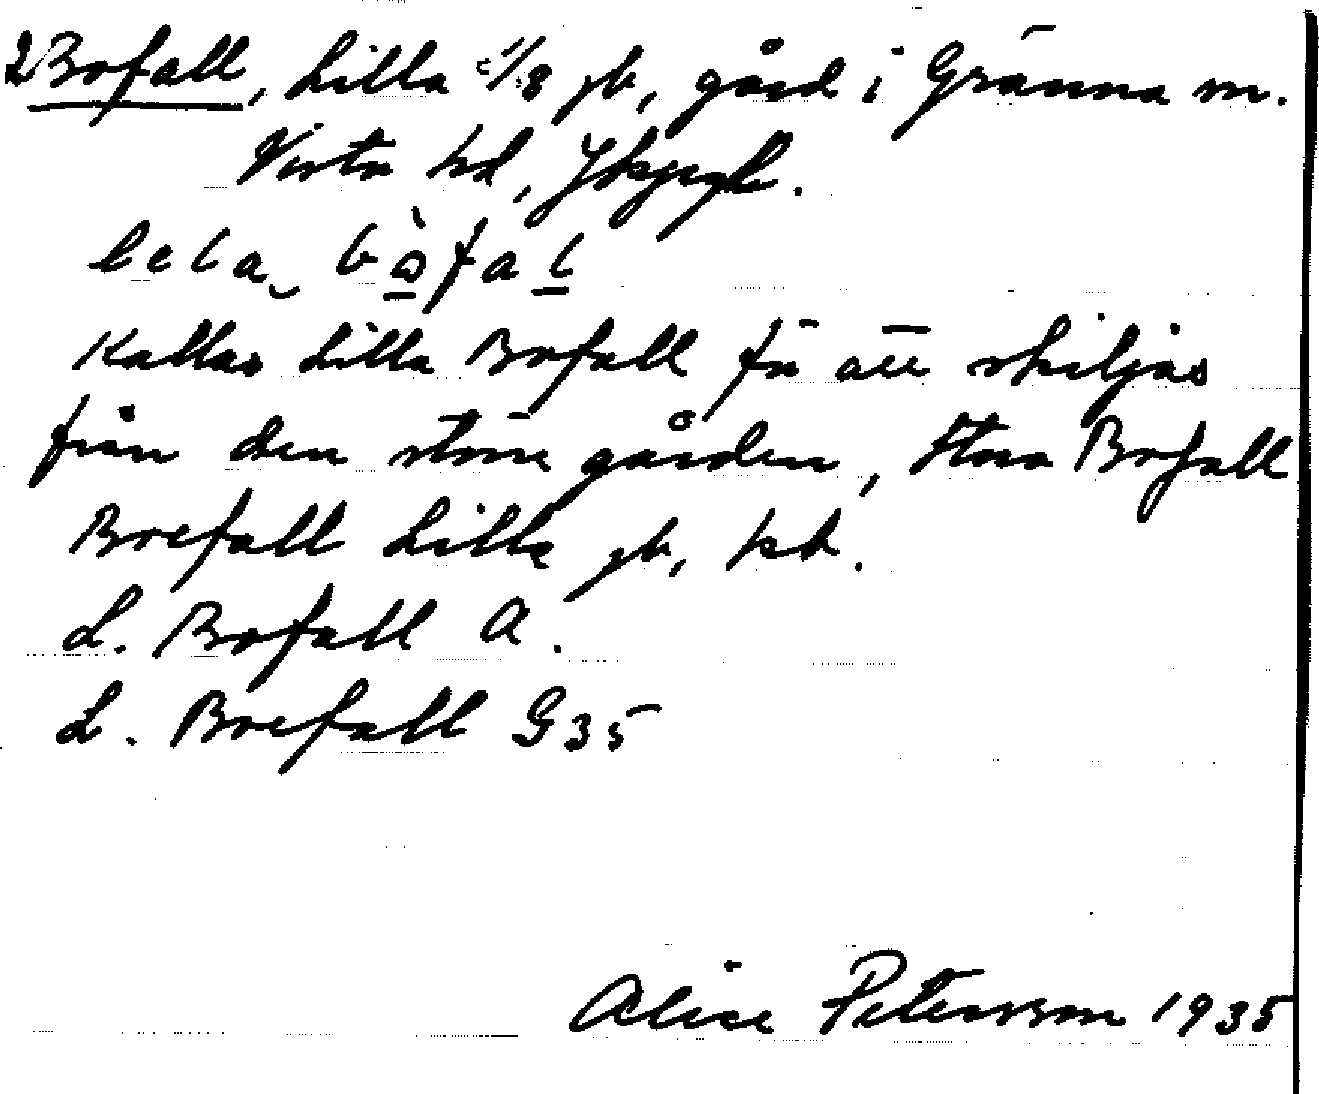 2 Bofall, Lilla 1/8 jb, gård i Gränna m.
Vista hd, Jkpgl.
Kallas Lilla Bofall för att skiljas
från den större gården, Stora Bofall
Boefall Lilla jb, hd.
L. Bofall A.
L. Boefall G 35
Alice Petersson 1935